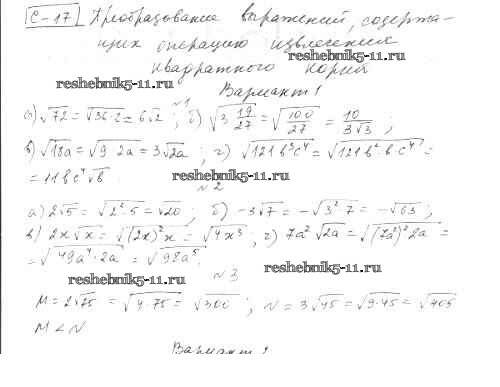 С-17 Преобразование выражений, содержа-
щих операцию извлечения
reshebnik5-11.ru reshebnik5-11.ru
квадратного корня
Вариант 1
№1
а) √72 = √36·2 = 6√2 ; б) √3 19/27 = √100/27 = 10/3√3 ;
в) √18a = √9·2a = 3√2a ; г) √121b³c⁴ = √121b²·b·c⁴ =
= 11bc⁴√b. reshebnik5-11.ru
№2
а) 2√5 = √2²·5 = √20 ; б) -3√7 = -√3²·7 = -√63 ;
в) 2x√x = √(2x)²x = √4x³ ; г) 7a²√2a = √(7a²)²2a =
= √49a⁴·2a = √98a⁵.
reshebnik5-11.ru reshebnik5-11.ru
№3
M = 2√75 = √4·75 = √300 ; N = 3√45 = √9·45 = √405
M < N
Вариант